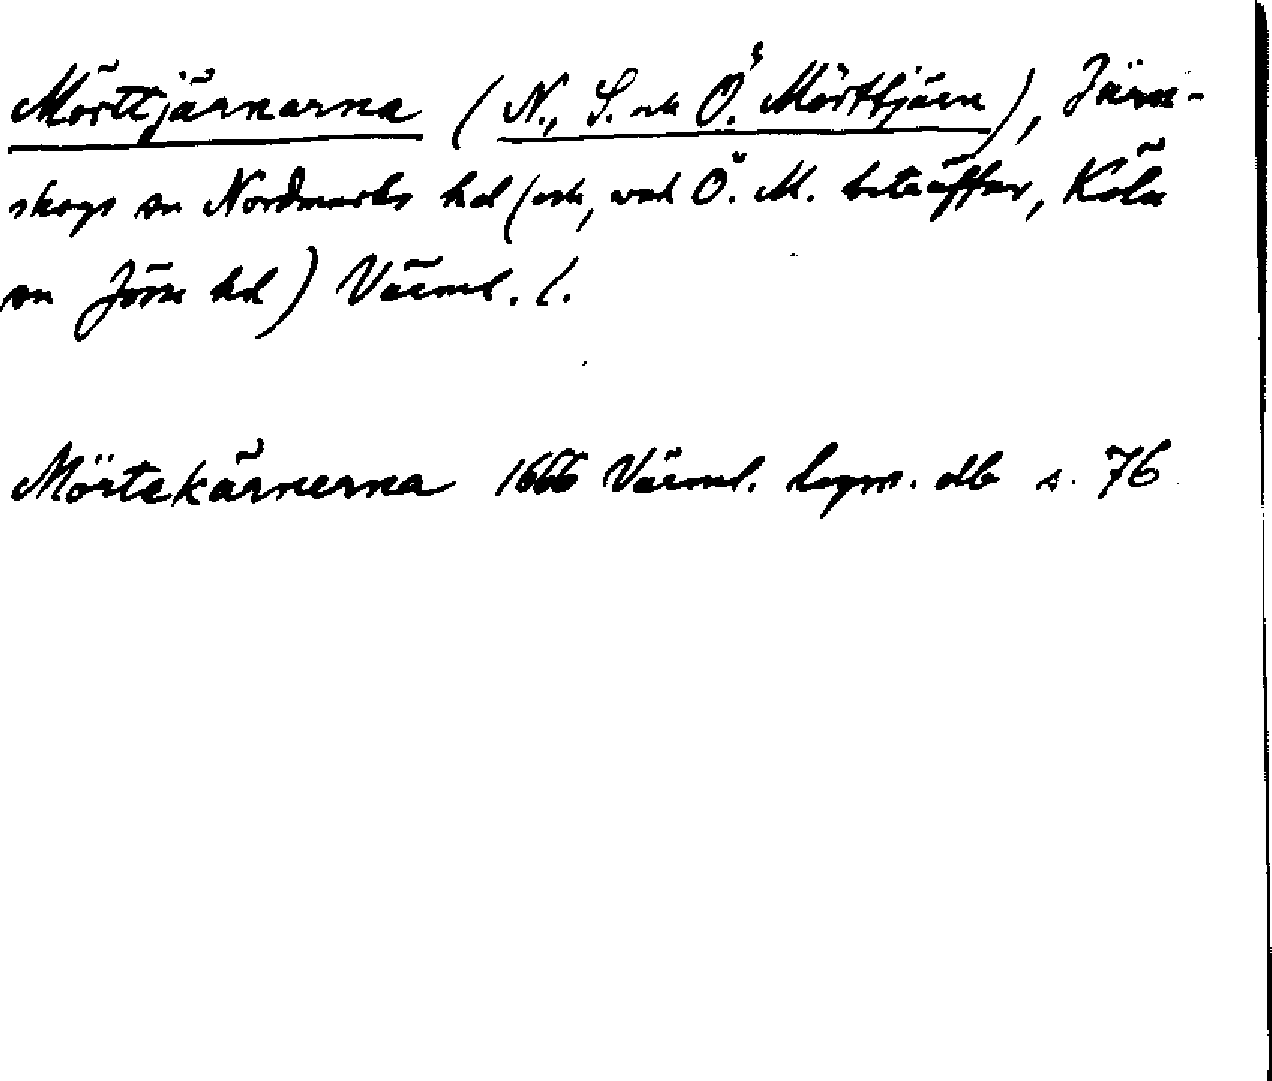 Mörttjärnarna (N., S. och Ö. Mörttjärn), Järn-
skogs sn Nordmarks hd (och, vad Ö. M. beträffar, Köla
sn Jösse hd) Värml. l.
Mörtekärnerna 1666 Värml. lagm. db s. 76